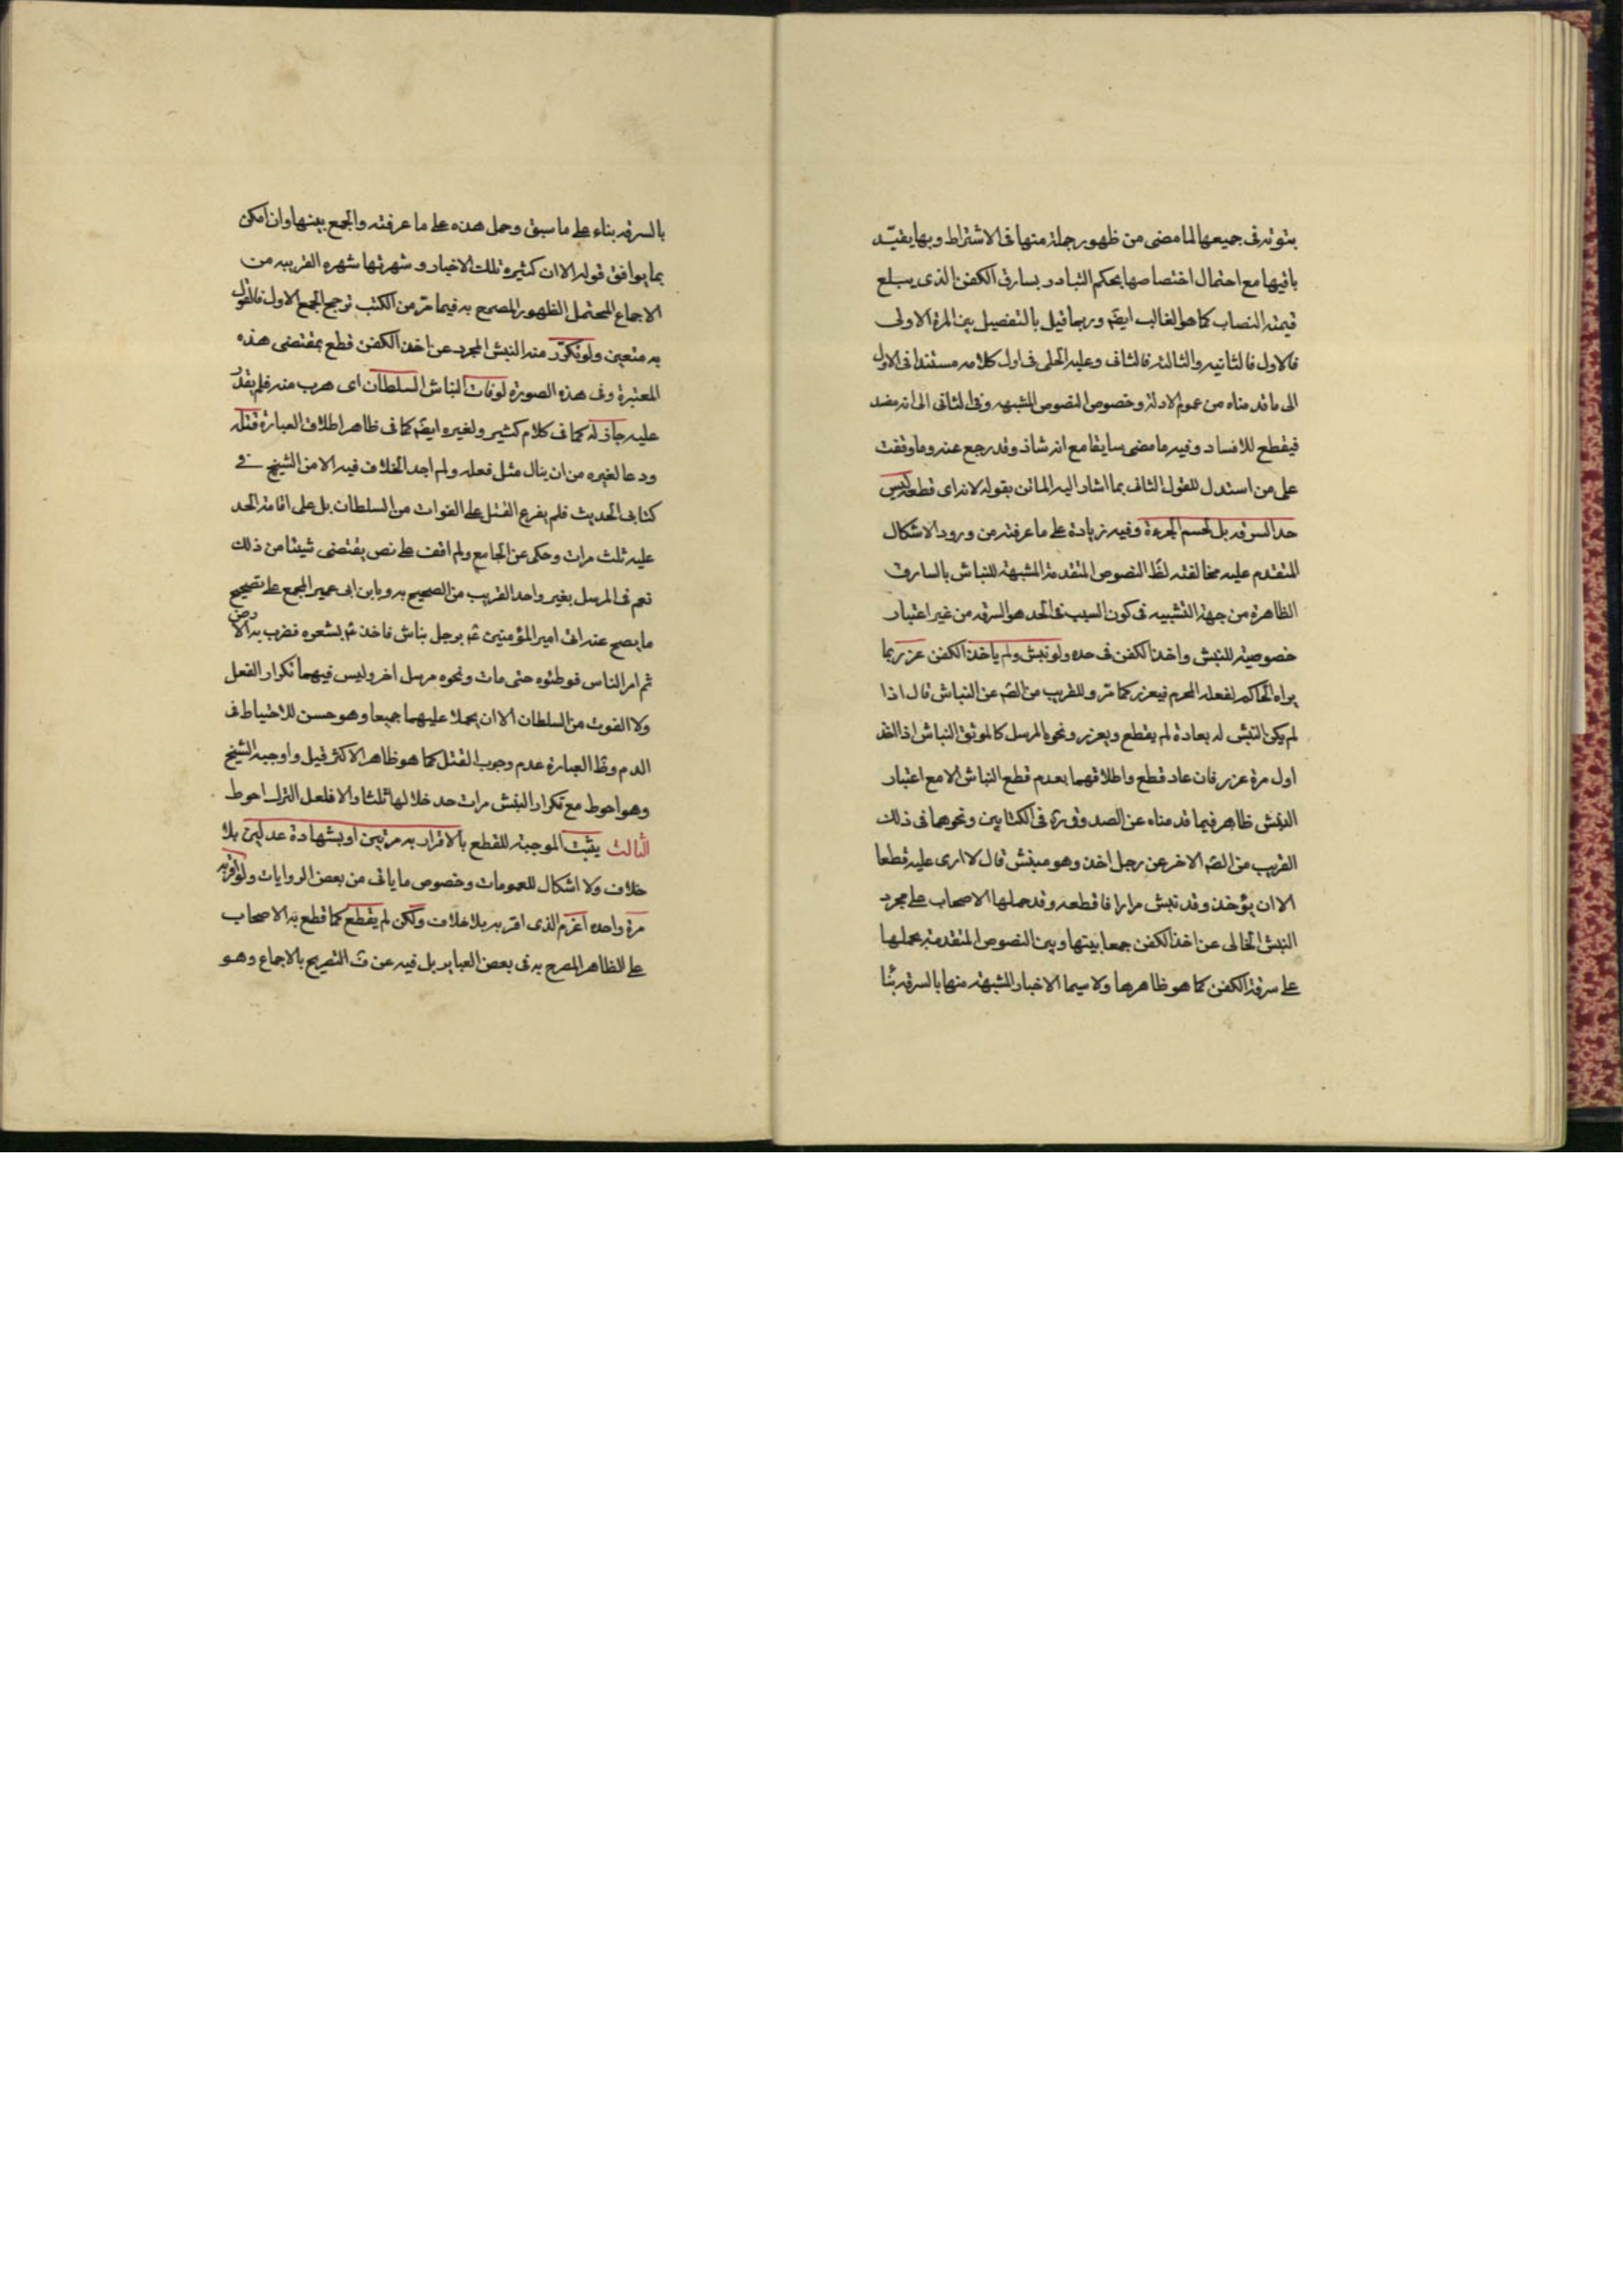 بثبوته في جميعها لما مضى من ظهور جملة منها في الاشتراط وبها يقيّد
باقيها مع احتمال اختصاصها بحكم التبادر بسارق الكفن الذي يبلغ
قيمته النصاب كما هو الغالب ايضا وربما قيل بالتفصيل بين المرة الاولى
فالاول فالثانيه والثالثه فالثاني وعليه الحلي في اول كلامه مستندا في الاول
الى ما قدمناه من عموم الادلة وخصوص النصوص المشبهه وفي الثاني الى انه مفسد
فيقطع للافساد وفيه ما مضى سابقا مع انه شاذ وقد رجع عنه وما وقفت
على من استدل للقول الثاني بما اشار اليه الماتن بقوله لانه اى قطعه ليس
حد السرقه بل لحسم الجرءة وفيه زيادة على ما عرفته من ورود الاشكال
المتقدم عليه مخالفته لظ النصوص المتقدمة المشبهة للنباش بالسارق
الظاهرة من جهة التشبيه في كون السبب في الحد هو السرقه من غير اعتبار
خصوصية للنبش واخذ الكفن في حده ولو نبش ولم ياخذ الكفن عزر بما
يراه الحاكم لفعله المحرم فيعزر كما مر وللقريب من الصّ عن النباش قال اذا
لم يكن النبش له بعادة لم يقطع ويعزر ونحوه المرسل كالموثق النباش اذا اخذ
اول مرة عزر فان عاد قطع واطلاقهما بعدم قطع النباش الا مع اعتبار
النبش ظاهر فيما قدمناه عن الصدوق ره في الكتابين ونحوهما في ذلك
القريب من الصّ الاخر عن رجل اخذ وهو ينبش قال لا ارى عليه قطعا
الا ان يؤخذ وقد نبش مرارا فاقطعه وقد حملها الاصحاب على مجرد
النبش الخالى عن اخذ الكفن جمعا بينها وبين النصوص المتقدمة بحملها
على سرقة الكفن كما هو ظاهرها ولا سيما الاخبار المشبهة منها بالسرقه بنا
بالسرقه بناء على ما سبق وحمل هذه على ما عرفته والجمع بينها وان امكن
بما يوافق قوله الا ان كثيره تلك الاخبار و شهرتها شهره القريبه من
الاجماع المحتمل الظهور المصرح به فيما مرّ من الكتب ترجح الجمع الاول فالقول
به متعين ولو تكرّر منه النبش المجرد عن اخذ الكفن قطع بمقتضى هذه
المعتبرة وفى هذه الصورة لو فات النباش السلطان اى هرب منه فلم يقدر
عليه جاز له كما في كلام كثير ولغيره ايضا كما في ظاهر اطلاق العبارة قتله
ودعا لغيره من ان ينال مثل فعله ولم اجد الخلاف فيه الا من الشيخ في
كتابى الحديث فلم يفرع القتل على الفوات من السلطان بل على اقامة الحد
عليه ثلث مرات وحكى عن الجامع ولم اقف على نص يقتضى شيئا من ذلك
نعم في المرسل بغير واحد القريب من الصحيح به و بابن ابى عمير المجمع على تصحيح
ما يصح عنه اتى امير المؤمنين ع برجل نباش فاخذ ع بشعره فضرب به الارض
ثم امر الناس فوطئوه حتى مات ونحوه مرسل اخر وليس فيهما تكرار الفعل
ولا الفوت من السلطان الا ان يحملا عليهما جميعا وهو حسن للاحتياط في
الدم وظ العبارة عدم وجوب القتل كما هو ظاهر الاكثر قيل واوجبه الشيخ
وهو احوط مع تكرار النبش مرات حد خلالها ثلثا والا فلعل الترك احوط
الثالث يثبت الموجبة للقطع بالاقرار به مرتين او بشهادة عدلين بلا
خلاف ولا اشكال للعمومات وخصوص ما ياتى من بعض الروايات ولو اقر به
مرة واحده اغرم الذى اقر به بلا خلاف ولكن لم يقطع كما قطع به الاصحاب
على الظاهر المصرح به في بعض العباير بل فيه عن ف التصريح بالاجماع وهو